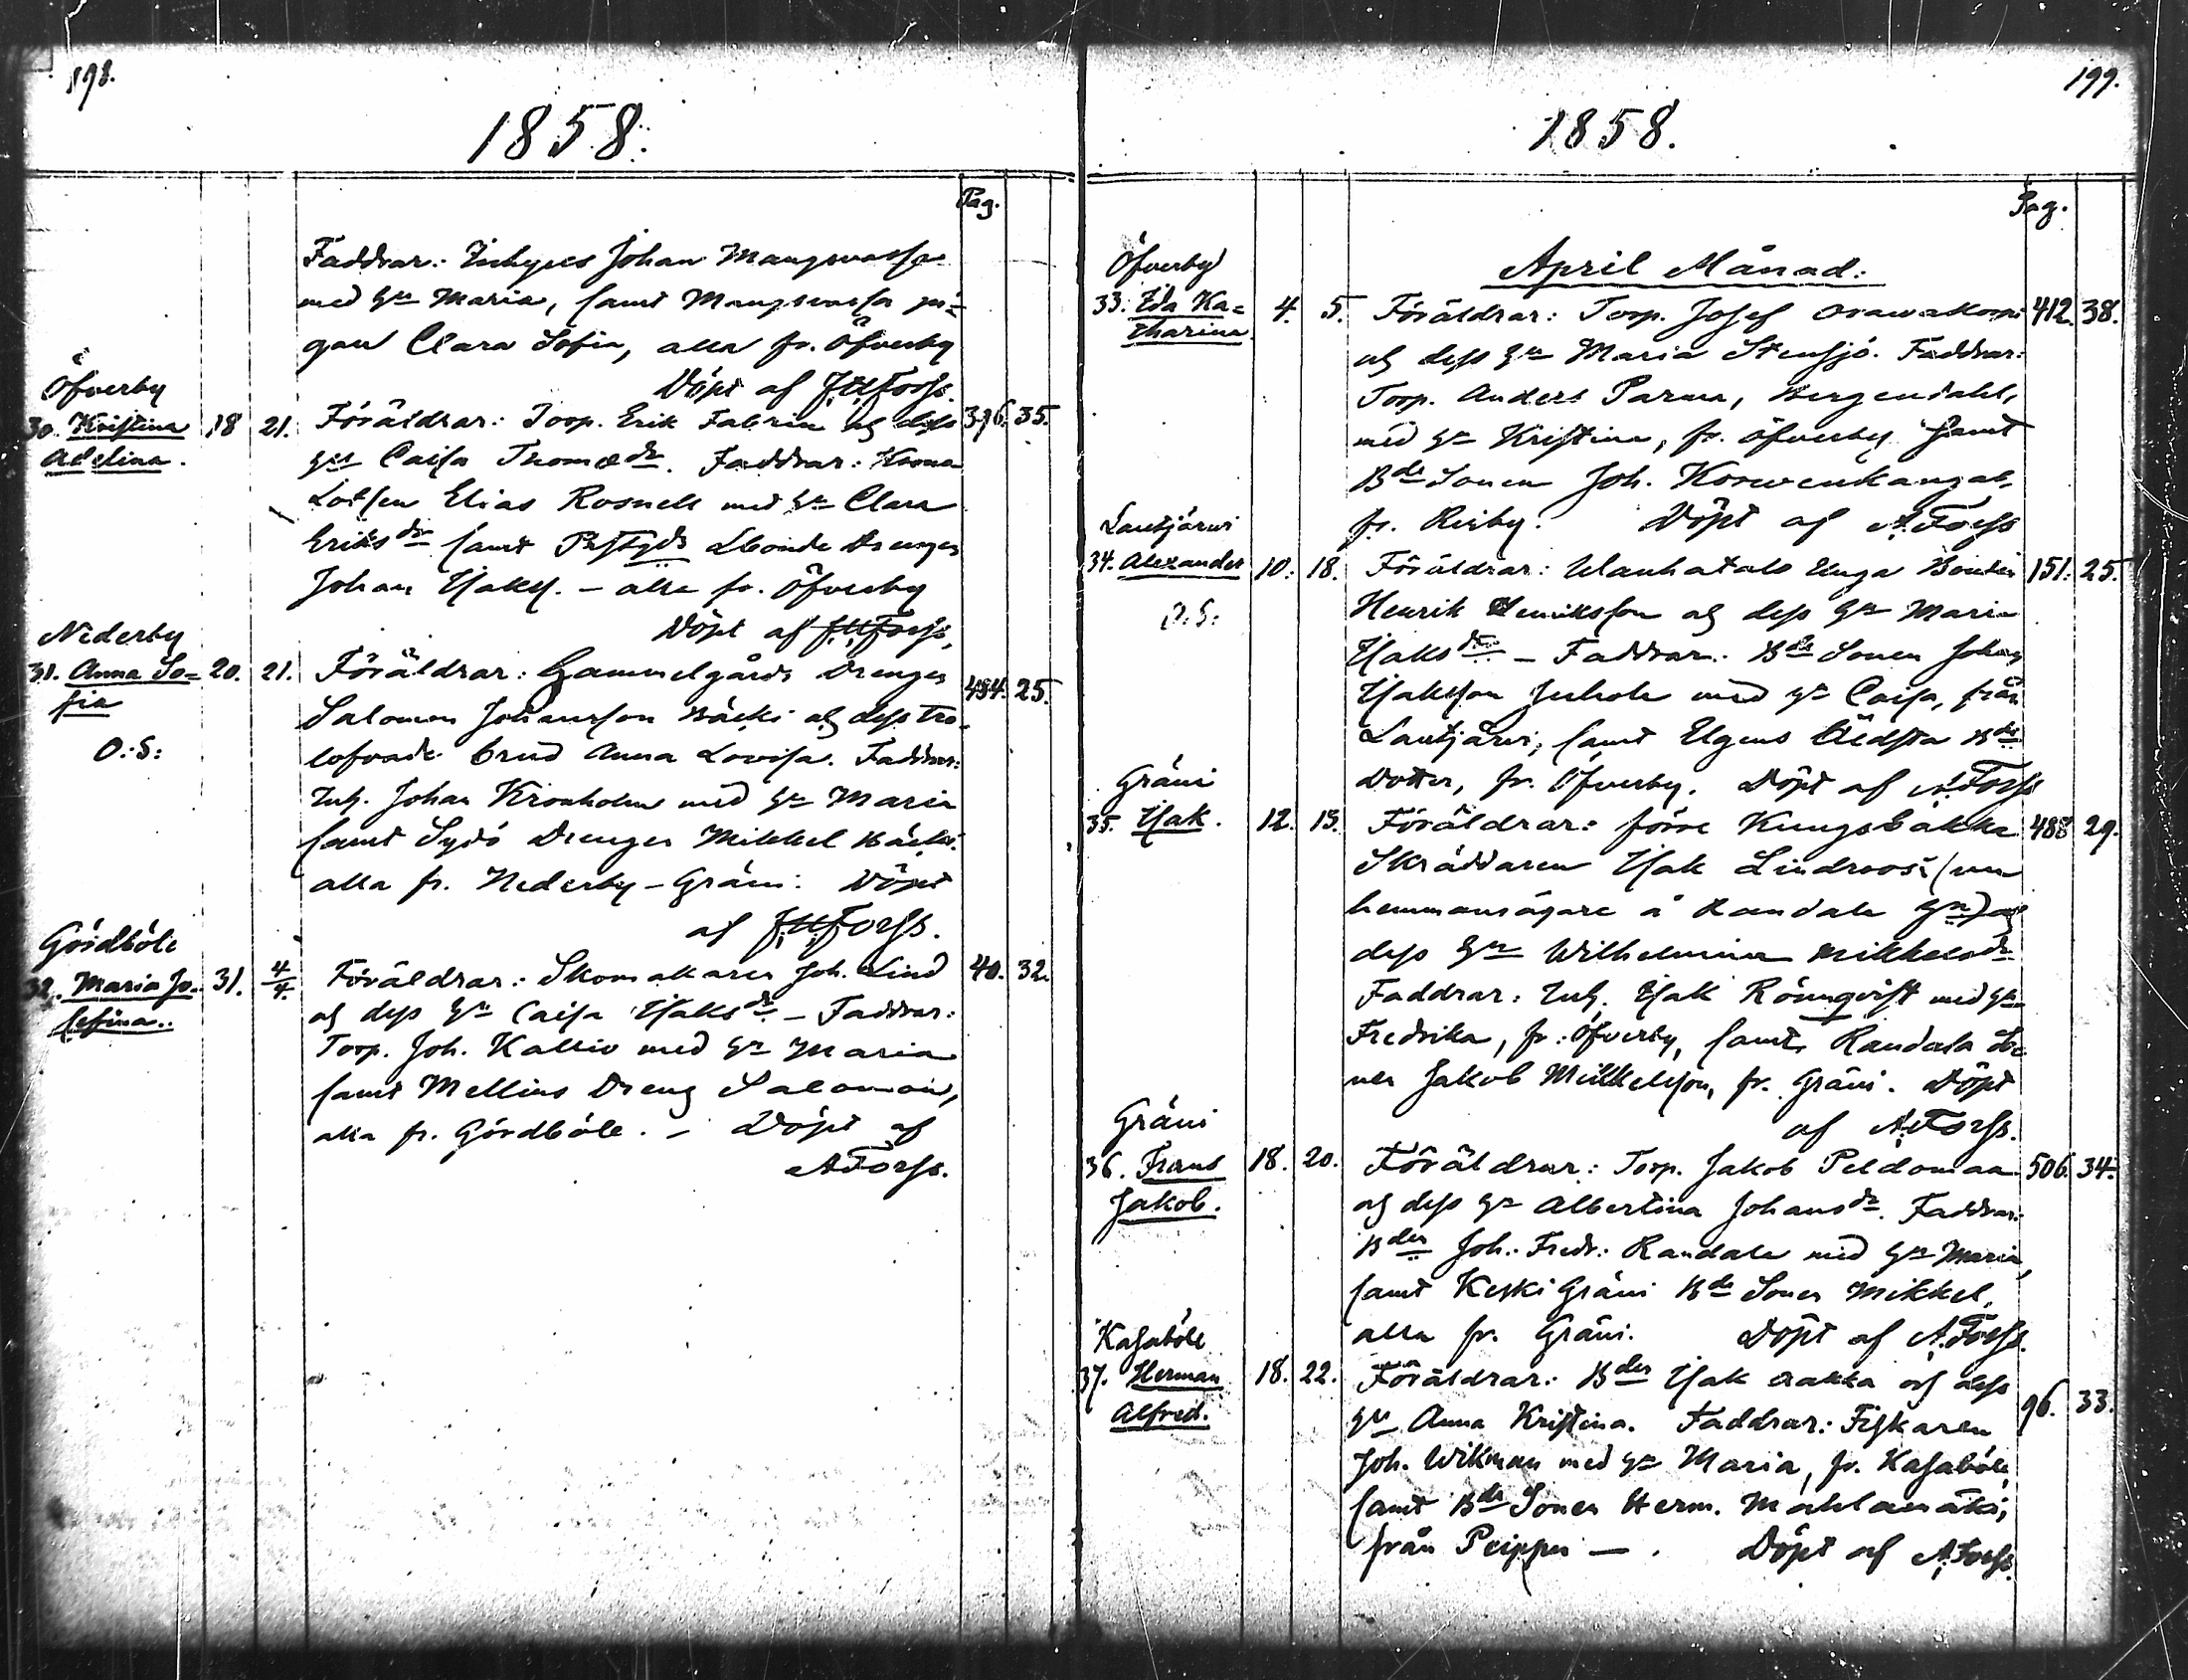 198.
1858.
Pag.
Faddrar: Johan
med hu Maria, samt pi=
gan Clara Sofia, alla fr. Öfverby
Döpt af Forss.
Öfverby
30. Kristina 18 21. Föräldrar: Torp. Erik Fabrin och dess 396. 35.
Adelina.
hu Caisa Thomædr. Faddrar: Krono
Lotsen Elias Rosnell med hu Clara
Eriksdr samt Åbonde Drengen
Johan Isaks. – alla fr. Öfverby
Döpt af Forss.
Nederby
31. Anna So= 20. 21. Föräldrar: Gammelgårds Drengen 484. 25.
fia
Salomon Johansson Bäcki och dess tro-
O.S:
lofvade brud Anna Lovisa. Faddrar:
Inh. Johan Kronholm med hu Maria
samt Sydö Drengen Mikkel Bäcki.
alla fr. Nederby-Gräni. Döpt
af Forss.
Gördböle
32. Maria Jo- 31. 4/4. Föräldrar: Skomakaren Joh. Lind 40. 32.
sefina..
och dess hu Caisa Isaksdr – Faddrar:
Torp. Joh. Kallio med hu Maria
samt Mellins Dreng Salomon,
alla fr. Gördböle. – Döpt af
A Forss.
199.
1858.
Pag.
April Månad.
Öfverby
33. Ida Ka= 4. 5. Föräldrar: Torp. Josef Orawakoski 412. 38.
tharina
och dess hu Maria Stensjö. Faddrar:
Torp. Anders Parma, Bergendahl,
med hu Kristina, fr. Öfverby samt
Bde Sonen Joh. Korwenkangas,
fr. Riсby. Döpt af A. Forss
Lautjärwi
34. Alexander 10. 18. Föräldrar: Ulanhatalo Unga Bonden 151. 25.
O.S:
Henrik Henriksson och dess hu Maria
Isaksdr – Faddrar: Bde Sonen Johan
Isaksson Juhola med hu Caisa, från
Lautjärwi, samt Elgens Äldsta Bde
Dotter, fr. Öfverby. Döpt af A. Forss
Gräni
35. Isak. 12. 13. Föräldrar: förre Kungsbakka 488 29.
Skräddaren Isak Lindroos (nu
hemmansägare å Randala ) och
dess hu Wilhelmina Mikkelsdr
Faddrar: Inh. Isak Rönnqvist med hu
Fredrika, fr. Öfverby, samt Randala So-
nen Jakob Mikkelsson, fr. Gräni. Döpt
af A. Forss.
Gräni
36. Frans 18. 20. Föräldrar: Torp. Jakob Peldomaa 506. 34.
Jakob.
och dess hu Albertina Johansdr. Faddrar:
Bden Joh. Fredr. Randala med hu Maria,
samt Keski Gräni Bde Sonen Mikkel,
alla fr. Gräni. Döpt af A. Forss.
Kasaböle
37. Herman 18. 22. Föräldrar: Bden Isak Rakka och dess 96. 33.
Alfred.
hu Anna Kristina. Faddrar: Fiskaren
Joh. Wikman med hu Maria, fr. Kasaböle,
samt Bde Sonen Herm. Mahlamäki,
från Peippu – . Döpt af A. Forss.